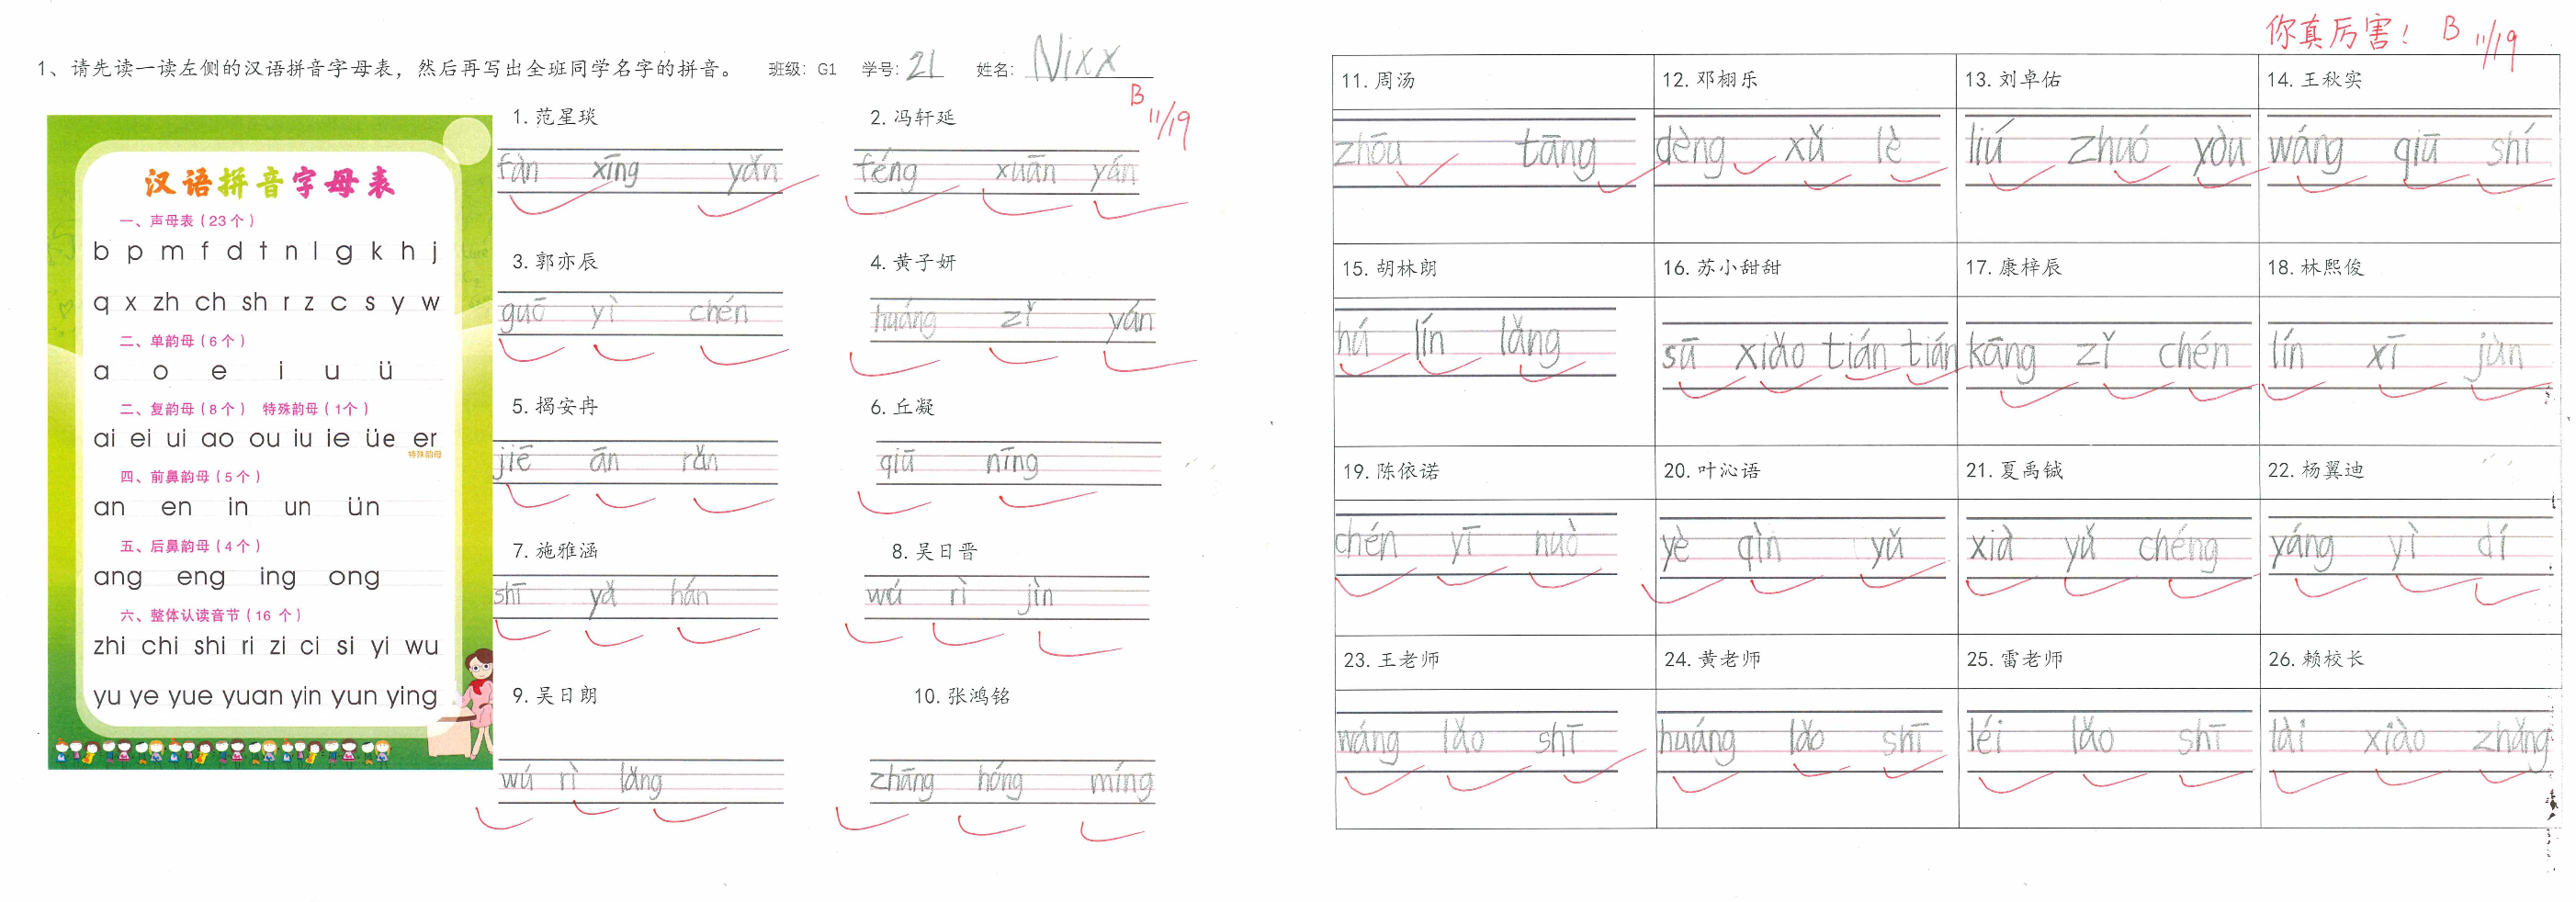 1、请先读一读左侧的汉语拼音字母表，然后再写出全班同学名字的拼音。 班级：G1 学号：21 姓名：Nixx
B 11/19
汉语拼音字母表
一、声母表（23个）
b p m f d t n l g k h j
q x zh ch sh r z c s y w
二、单韵母（6个）
a o e i u ü
二、复韵母（8个） 特殊韵母（1个）
ai ei ui ao ou iu ie üe er
特殊韵母
四、前鼻韵母（5个）
an en in un ün
五、后鼻韵母（4个）
ang eng ing ong
六、整体认读音节（16个）
zhi chi shi ri zi ci si yi wu
yu ye yue yuan yin yun ying
1. 范星琰 2. 冯轩延
fàn xīng yǎn féng xuān yán
3. 郭亦辰 4. 黄子妍
guō yì chén huáng zǐ yán
5. 揭安冉 6. 丘凝
jiē ān rǎn qiū níng
7. 施雅涵 8. 吴日晋
shī yǎ hán wú rì jìn
9. 吴日朗 10. 张鸿铭
wú rì lǎng zhāng hóng míng
你真厉害！ B 11/19
11. 周汤 12. 邓栩乐 13. 刘卓佑 14. 王秋实
zhōu tāng dèng xǔ lè liú zhuó yòu wáng qiū shí
15. 胡林朗 16. 苏小甜甜 17. 康梓辰 18. 林熙俊
hú lín lǎng sū xiǎo tián tián kāng zǐ chén lín xī jùn
19. 陈依诺 20. 叶沁语 21. 夏禹铖 22. 杨翼迪
chén yī nuò yè qìn yǔ xià yǔ chéng yáng yì dí
23. 王老师 24. 黄老师 25. 雷老师 26. 赖校长
wáng lǎo shī huáng lǎo shī léi lǎo shī lài xiào zhǎng